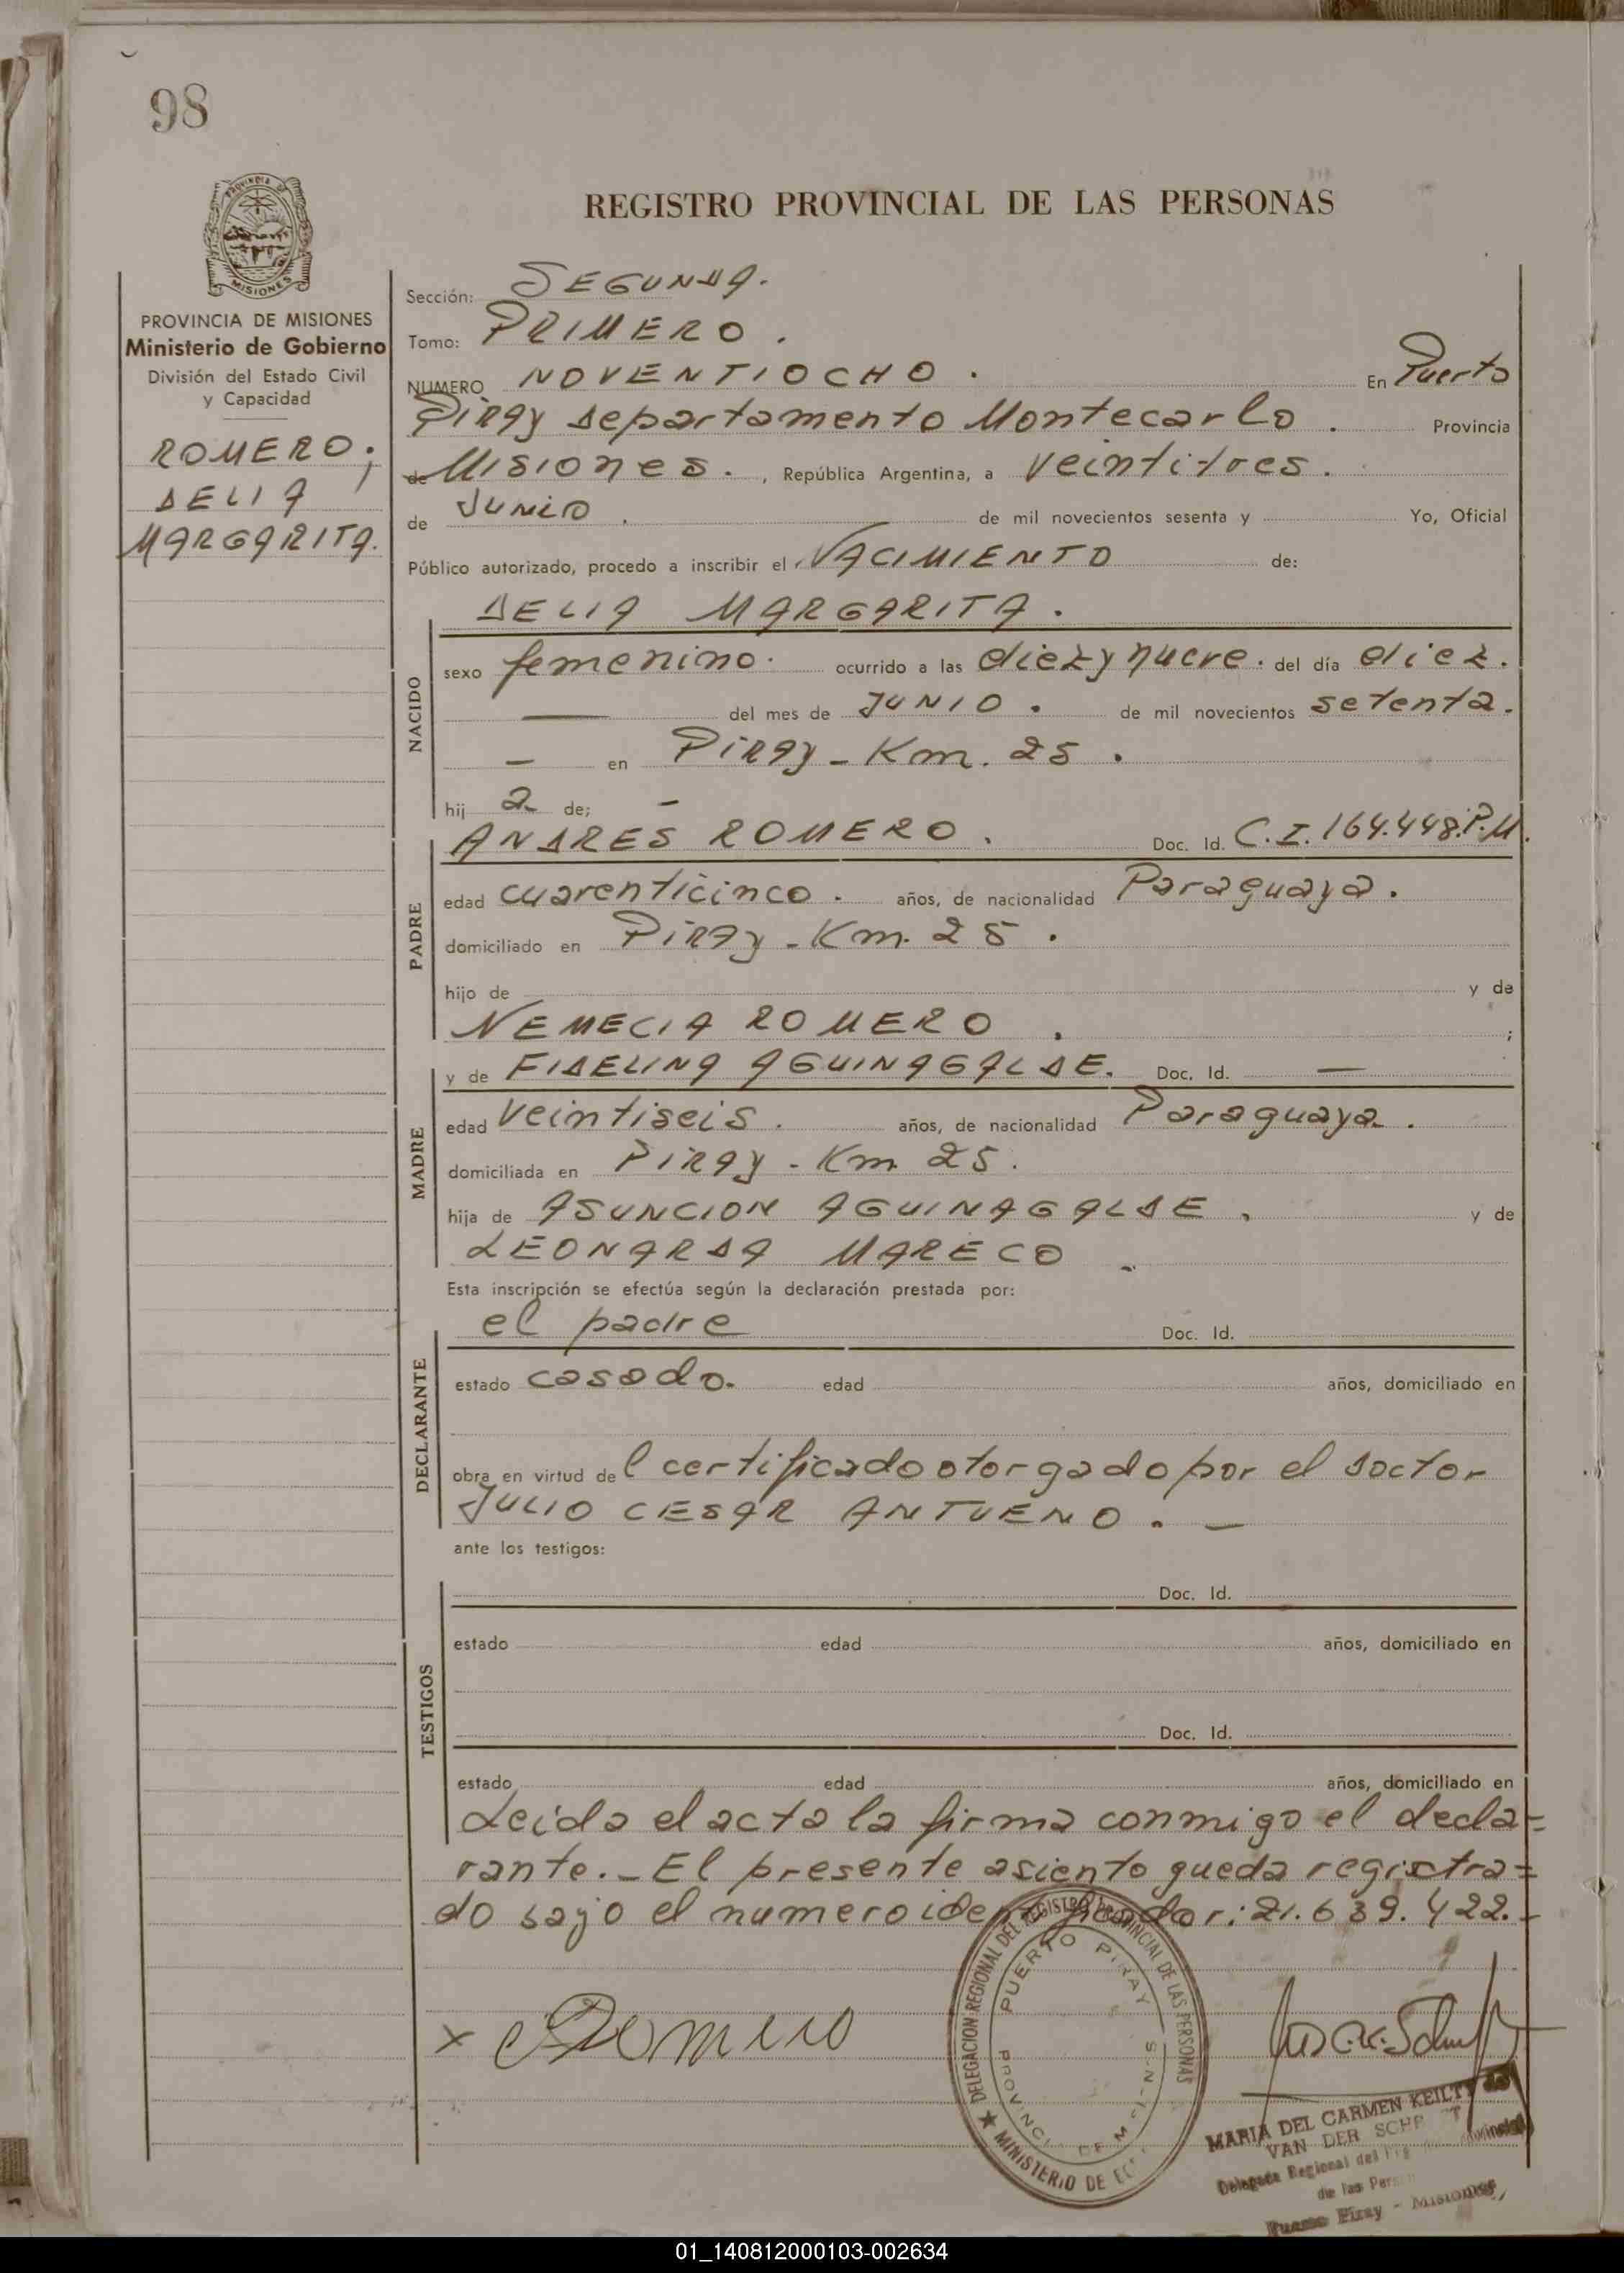 98
PROVINCIA DE
MISIONES
PROVINCIA DE MISIONES
Ministerio de Gobierno
División del Estado Civil
y Capacidad
ROMERO;
DELIA
MARGARITA.
REGISTRO PROVINCIAL DE LAS PERSONAS
Sección: SEGUNDA.
Tomo: PRIMERO.
NUMERO NOVENTIOCHO. En Puerto
Piray departamento Montecarlo. Provincia
de Misiones. , República Argentina, a veintitres.
de JUNIO. de mil novecientos sesenta y Yo, Oficial
Público autorizado, procedo a inscribir el NACIMIENTO de:
DELIA MARGARITA.
NACIDO
sexo femenino. ocurrido a las diezynueve. del día diez.
— del mes de JUNIO. de mil novecientos setenta.
— en Piray - Km. 25.
hij a de; —
ANDRES ROMERO. Doc. Id. C.I. 164.448.P.M.
PADRE
edad cuarenticinco. años, de nacionalidad Paraguaya.
domiciliado en Piray - Km. 25.
hijo de y de
NEMECIA ROMERO. ;
y de FIDELINA AGUINAGALDE. Doc. Id. —
MADRE
edad veintiseis. años, de nacionalidad Paraguaya.
domiciliada en Piray - Km 25.
hija de ASUNCION AGUINAGALDE, y de
LEONARDA MARECO
Esta inscripción se efectúa según la declaración prestada por:
el padre Doc. Id.
DECLARANTE
estado casado. edad años, domiciliado en
obra en virtud de l certificado otorgado por el doctor
JULIO CESAR ANTUENO. —
ante los testigos:
Doc. Id.
TESTIGOS
estado edad años, domiciliado en
Doc. Id.
estado edad años, domiciliado en
Leida el acta la firma conmigo el decla=
rante.- El presente asiento queda registra=
do bajo el numero identificador: 21.639.422.-
DELEGACION REGIONAL DEL REGISTRO PROVINCIAL DE LAS PERSONAS
PUERTO PIRAY
PROVINCI DE
★ MINISTERIO DE
x Romero
MARIA DEL CARMEN KEILTY de
VAN DER
Delegada Regional del
de las
Puerto Piray - Misiones
01_140812000103-002634